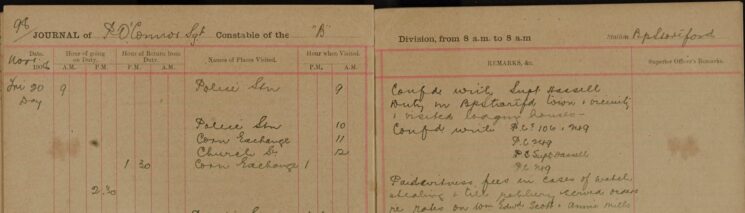 98
JOURNAL of P O'Connor Sgt Constable of the "B" Division, from 8 a.m. to 8 a.m Station Bp Stortford
Date. Hour of going on Duty. Hour of Return from Duty. Names of Places Visited. Hour when Visited. REMARKS, &c. Superior Officer's Remarks.
Novr 190 A.M. P.M. A.M. P.M. P.M. A.M.
Fri 20 9 Police Stn 9 Confd with Supt Hassell
Day Duty in Bp Stortfd town & vicinity
& visited lodgin houses -
Police Stn 10 Confd with P.Cs 106 & 209
Corn Exchange 11 P.C 209
Church St 12 P.C Supt Hassell
1 30 Corn Exchange 1 P.C 209
2.30 Paid witness fees in cases of watch
stealing & till robbery served orders
re rates on Wm Edwd Scott & Annie Mills